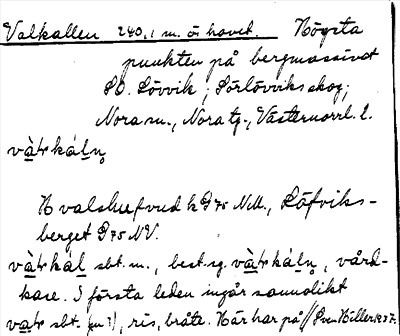 Valkallen 240,1 m. ö. havet. Högsta
punkten på bergmassivet
SO. Lövvik; Sörlövviks skog;
Nora sn., Nora tg., Västernorrl. l.
và̱ɫkáln̥
H valshufvud k G75 NM., Löfviks-
berget G75 NV.
và̱ɫkál sbt. m., best. sg. và̱ɫkáln̥, vård-
kase. I första leden ingår sannolikt
va̱ɫ sbt. (m?), ris, bråte. Här har på // Pn Hiller 1937.